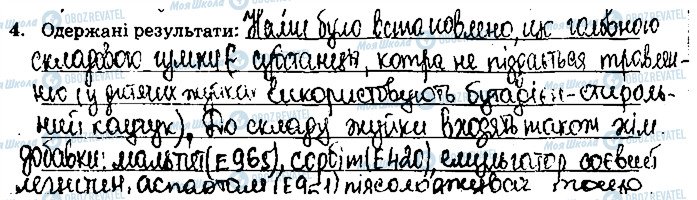 4. Одержані результати: Нами було встановлено, що головною
складовою гумки є субстанція, котра не піддається травлен-
ню (у дитячих жуйках використовують бутадієн-стироль-
ний каучук). До складу жуйки входять також хім
добавки: мальтит (Е965), сорбіт (Е420), емульгатор соєвий
лецитин, аспартам (Е951) підсолоджувач